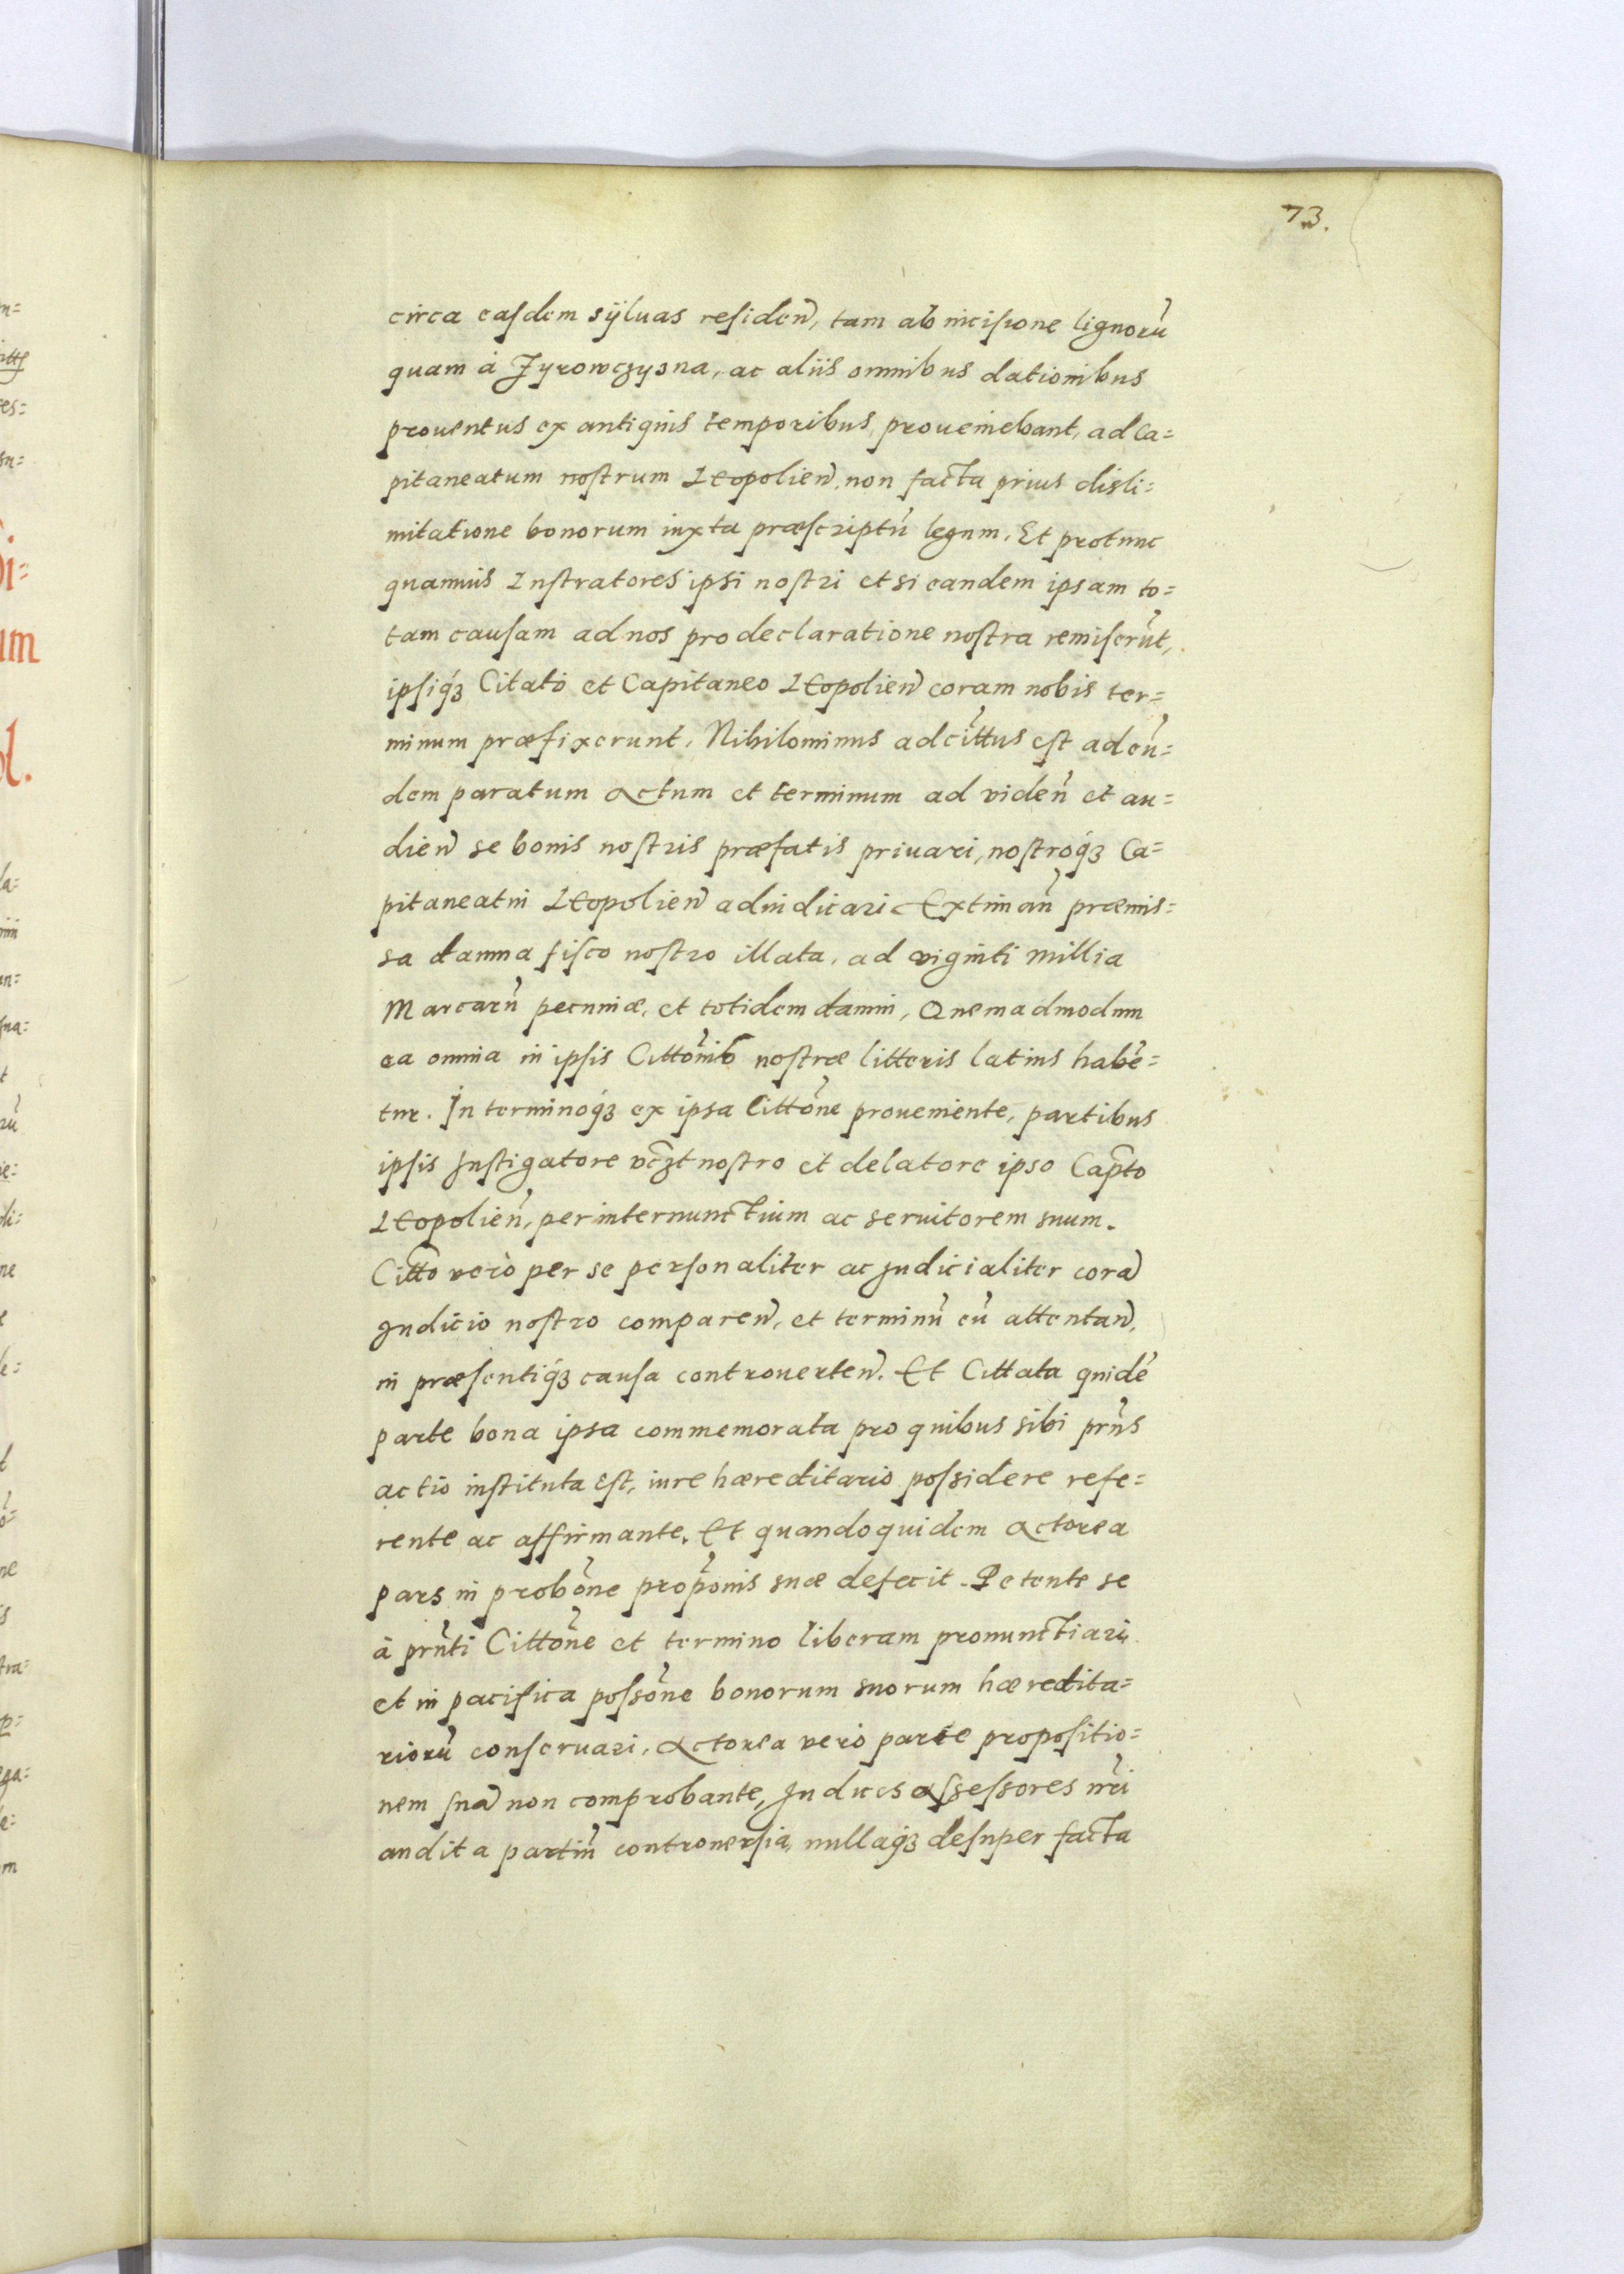 73.
circa easdem sÿluas residen̄, tam ab incisione lignorū
quam à Zyrowczysna, ac aliis omnibus dationibus
prouentus ex antiquis temporibus, proueniebant, ad Ca=
pitaneatum nostrum Leopolien̄, non facta prius disli=
mitatione bonorum iuxta præscriptū legum. Et protunc
quamuis Lustratores ipsi nostri etsi eandem ipsam to=
tam causam ad nos pro declaratione nostra remiserūt,
ipsiq́ꝫ Citato et Capitaneo Leopolien̄ coram nobis ter=
minum præfixerunt. Nihilominus adcittus est ad eū=
dem paratum actum et terminum ad viden̄ et au=
dien̄ se bonis nostris præfatis priuari, nostroq́ꝫ Ca=
pitaneatui Leopolien̄ adiudicari Extiman̄ præmis=
sa damna fisco nostro illata, ad viginti millia
Marcarū pecuniæ, et totidem damni, Quemadmodum
ea omnia in ipsis Cittōnib nostræ litteris latius habē=
tur. In terminoq́ꝫ ex ipsa Cittōne proueniente, partibus
ipsis Instigatore vꝫt nostro et delatore ipso Capto
Leopolien̄, per internunctium ac seruitorem suum.
Citto verò per se personaliter ac Iudicialiter corā
Iudicio nostro comparen̄, et terminū eū attentan̄,
in præsentiq́ꝫ causa controuerten̄. Et Cittata quidē
parte bona ipsa commemorata pro quibus sibi prn̄s
actio instituta est, iure hæreditario possidere refe=
rente ac affirmante. Et quandoquidem actorea
pars in probōne propōnis suæ defecit. Petente se
à prn̄ti Cittōne et termino liberam pronunctiari
et in pacifica possōne bonorum suorum hæredita=
riorū conseruari, actorea verò parte propositio=
nem suā non comprobante, Iudices assessores nr̄i
audita partiū controuersia, nullaq́ꝫ desuper facta